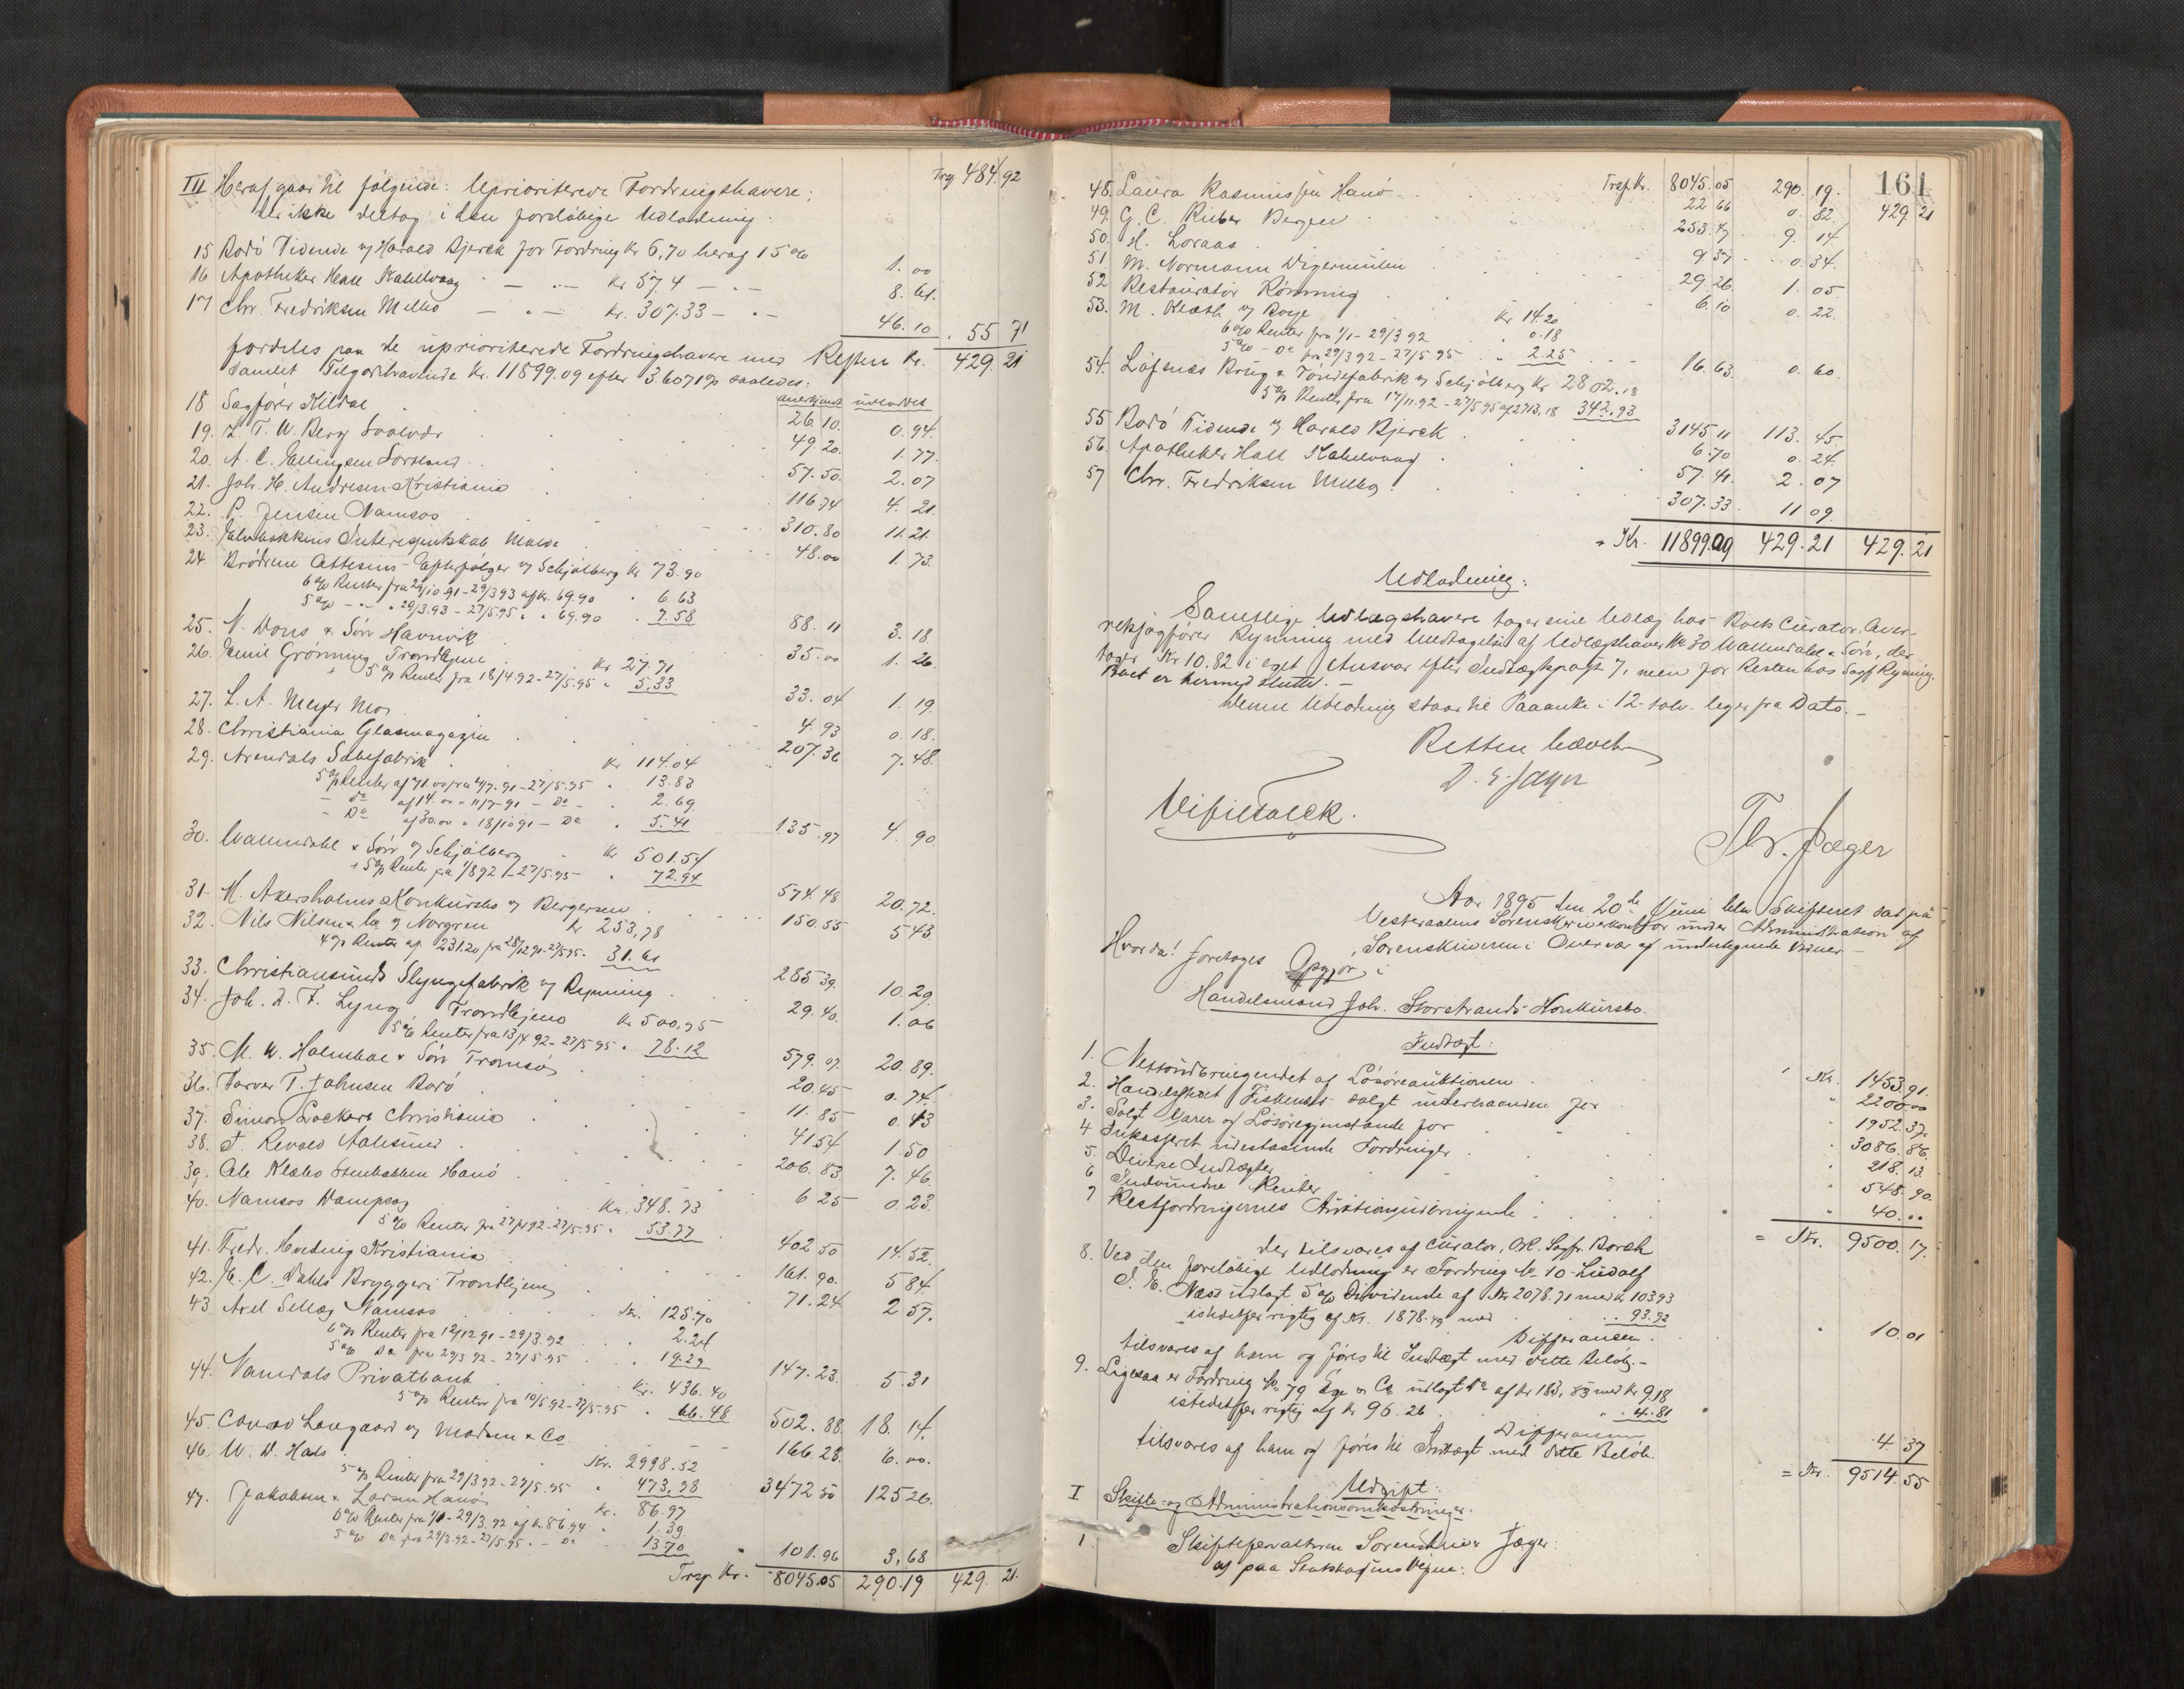 Trsp 484.92
III Heraf gaar til følgende: Uprioriterede Fordringshavere,
der ikke deltog i den foreløbige Udlodning.
15 Bodø Tidende v/ Harald Bjerck for Fordring Kr 6,70 heraf 15 % 1.00
16 Apotheker Hall Kabelvaag — „ — Kr 57.4 — „ — 8.61.
17 Chr. Fredriksen Melbo — „ — Kr. 307.33 — „ — 46.10 . 55 71
fordeles paa de uprioriterede Fordringshavere med Resten Kr. 429.21
samlet Tilgodehavende Kr. 11899.09 efter 3.6071 % saaledes:
anerkjendt udloddet
18 Sagfører Kildal 26.10. 0.94.
19. L. T. W. Berg Svolvær 49.20. 1.77.
20. A. C. Ellingsen Sortland 57.50. 2.07
21. Joh. H. Andresen Kristiania 116.74 4.21.
22. P. Jensen Namsos 310.80 11.21.
23. Interessentskab Molde 48.00 1.73.
24. Brødrene Efterfølger v/ Schjølberg Kr 73.90
6 % Renter fra 29/10 91 - 29/3 93 af Kr. 69.90 „ 6.63
5 % — „ — 29/3.93 - 27/5.95 „ „ 69.90 . 7.58 88.11 3.18
25. N. Dons & Søn Havnvik 35.00 1.26.
26. Emil Grønning Trondhjem Kr 27.71
+ 5 % Renter fra 18/4.92 - 27/5.95 „ 5.33 33.04 1.19.
27. L. A. Meyer Mo 4.93 0.18.
28. Christiania Glasmagazin 207.36 7.48.
29. Arendals Kr 114.04
5 % Renter af 71.00 fra 91 - 27/5.95 „ 13.83
— Do af 14.00 „ 91 — Do — . 2.69
— Do af 30.00 „ 18/10 91 — Do „ 5.41 135.97 4.90
30. Wallendahl & Søn v/ Schjølberg Kr 501.54
+ 5 % Renter fra 1/8 92 - 27/5.95 „ 72.94 574.48 20.72.
31. M. Akersholms Konkursbo v/ Bergersen 150.55 5 43.
32. Nils Nilsen & Co v/ Norgren Kr 253,78
4 % Renter af 231.20 fra 28/12 91 - 27/5 95. 31.61 285 39. 10.29.
33. Christiansunds Slyngefabrik v/ Rynning 29.40. 1.06
34. Joh. D. F. Lyng Trondhjem Kr 500,95
5 % Renter fra 13/4 92 - 27/5 95 „ 78.12 579.07. 20.89.
35. M. W. Holmboe & Søn Tromsø 20.45 0.74.
36. Farver T. Johnsen Bodø 11.85 0.43
37. Simon Lockert Christiania 41 54 1.50
38. J. Revold Aalesund 206.83. 7.46.
39. Ole Klæbo Stenbakken Hanø 6 25 0.23.
40. Namsos Dampsag Kr. 348.73
5 % Renter fra 27/4 92 - 27/5.95 „ 53.77 402 50 14.52.
41. Fredr. Kristiania 161.90. 5 84.
42. E. C. Dahls Bryggeri Trondhjem 71.24 2 57.
43 Axel Sellæg Namsos Kr. 125.70
6 % Renter fra 12/12 91 - 29/3.92 2.24
5 % Do fra 29/3 92 - 27/5 95 19.29 147.23. 5.31
44. Namdals Privatbank Kr. 436.40
5 % Renter fra 10/5 92 - 27/5.95 „ 66.48 502.88. 18.14.
45. Conrad Langaard v/ Madsen & Co 166.28. 6.00.
46. W. D. Hals Kr. 2998.52
5 % Renter fra 29/3 92 - 27/5 95 „ 473.98 3472 50 125 26.
47. Jakobsen & Larsen Hanø Kr. 86.97
6 % Renter fra - 29/3.92 af Kr. 86.94 „ 1.39.
5 % Do fra 29/3.92 - 27/5.95. — Do 13.70 „ 101.96 3,68
Trsp Kr. 8045.05 290.19 429. 21.
161
Trsp Kr. 8045.05 290.19. 429 21
48. Laura Rasmussen Hanø 22 66 0.82.
49. G. C. Rieber Bergen 253.47 9.14.
50. H. Loraas 9 37 0.34.
51 M. Normann Digermulen 29.26. 1.05
52 Restauratør Rønning 6.10 0.22.
53. M. Kr 14.20
6 % Renter fra 1/1 - 29/3 92 „ 0.18
5 % — Do fra 29/3 92 - 27/5 95 „ 2.25 16.63. 0.60.
54. Løfsnæs Brug & Tøndefabrik v/ Schjølberg Kr 2802.18
5 % Renter fra 17/11.92 - 27/5 95 af 2713,18 342.93 3145 11 113.45.
55 Bodø Tidende v/ Harald Bjerck 6.70 0.24.
56. Apotheker Hall Kabelvaag 57.41. 2.07
57 Chr. Fredriksen Melbo 307.33. 11 09.
= Kr. 11899.09 429.21 429.21
Udlodning:
Samtlige Udlægshavere tager sine Udlæg hos Boets Curator, Over-
retssagfører Rynning med Undtagelse af Udlægshaver No 30 Wallendahl & Søn, der
tager Kr 10,82 i eget Ansvar efter Indtægtspost 7, men for Resten hos Sagf Rynning.
Boet er hermed sluttet. —
Denne Udlodning staar til Paaanke i 12-tolv- Uger fra Dato. —
Retten hævet
D. G. Jæger
Thr. Jæger
Aar 1895 den 20de Juni blev Skifteret sat på
Vesteraalens Sorenskriverkontor under Administration af
Sorenskriveren i Overvær af undertegnede Vidner —
Hvorda! foretoges Opgjør i
Handelsmand Joh. Storstrands Konkursbo.
Indtægt:
1. Nettoudbringendet af Løsøreauktionen Kr. 1453.91.
2. Handelsstedet Fiskenes solgt underhaanden for „ 2200.00
3. Solgt Varer og Løsøregjenstande for „ 1952.37.
4 Inkasseret udestaaende Fordringer „ 3086.86.
5. Diverse Indtægter „ 218.13.
6 Indvundne Renter „ 548.90.
7 Restfordringernes Auktionsudbringende „ 40.00
der tilsvares af Curator, O.R. Sagfr. Borch = Kr. 9500.17.
8. Ved den foreløbige Udlodning er Fordring No 10 Ludolf
J. Næss udlagt 5 % Dividende af Kr 2078.71 med Kr 103 93
istedetfor rigtig af Kr. 1878.49 med 93.92
Differansen.
tilsvares af ham og føres til Indtægt med dette Beløb. — „ 10.01
9. Ligesaa er Fordring No 79 Ege & Co udlagt Do af Kr 183,53 med Kr 9.18
istedetfor rigtig af Kr 96.26 „ 4.81
Differansen
tilsvares af ham og føres til Indtægt med dette Beløb. 4.37
= Kr. 9514.55
Udgift:
I Skifte- og Administrationsomkostninger:
1 Skifteforvalteren Sorenskriver Jæger:
a/ paa Statskassens Vegne: